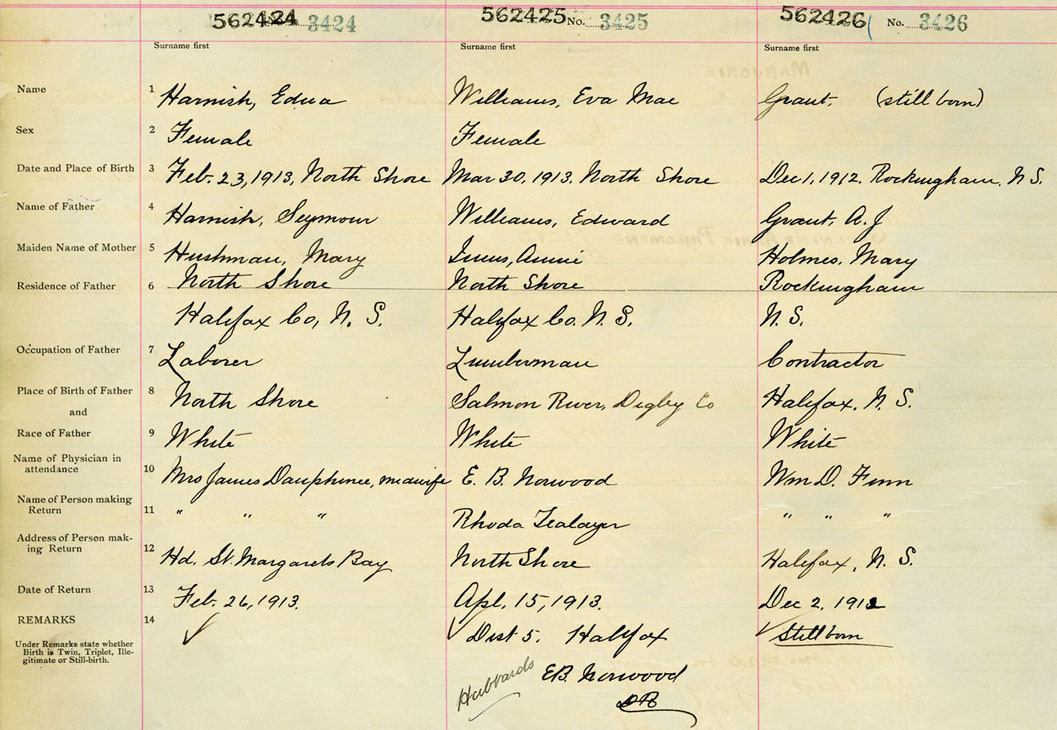 562424 3424 562425 No. 3425 562426 No. 3426
Surname first Surname first Surname first
Name 1 Harnish, Edna Williams, Eva Mae Grant, (still born)
Sex 2 Female Female
Date and Place of Birth 3 Feb. 23, 1913, North Shore Mar 30, 1913. North Shore Dec 1, 1912. Rockingham, N.S.
Name of Father 4 Harnish, Seymour Williams, Edward Grant, A.J
Maiden Name of Mother 5 Hushman, Mary Annie Holmes, Mary
Residence of Father 6 North Shore North Shore Rockingham
Halifax Co, N. S. Halifax Co. N. S. N. S.
Occupation of Father 7 Laborer Lumberman Contractor
Place of Birth of Father 8 North Shore Salmon River, Digby Co Halifax, N. S.
and
Race of Father 9 White White White
Name of Physician in
attendance 10 Mrs James Dauphinee, midwife E. B. Norwood Wm D. Finn
Name of Person making
Return 11 " " " Rhoda " " "
Address of Person mak-
ing Return 12 Hd. St. Margarets Bay North Shore Halifax, N. S.
Date of Return 13 Feb. 26, 1913. Apl. 15, 1913. Dec 2, 1912
REMARKS 14 ✓ ✓ Dist 5. Halifax ✓ Still born
Under Remarks state whether
Birth is Twin, Triplet, Ille-
gitimate or Still-birth.
Hubbards E.B. Norwood
DR